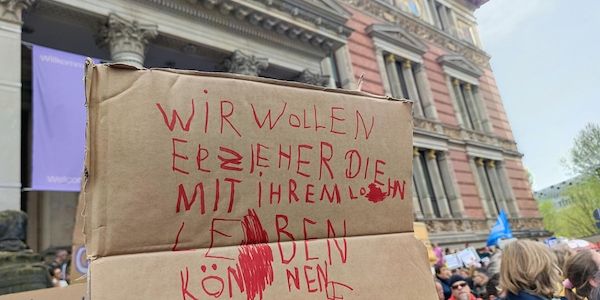 Willkommen
Welcome
WIR WOLLEN
ERZIEHER DIE
MIT IHREM LOHN
LEBEN
KÖNNEN